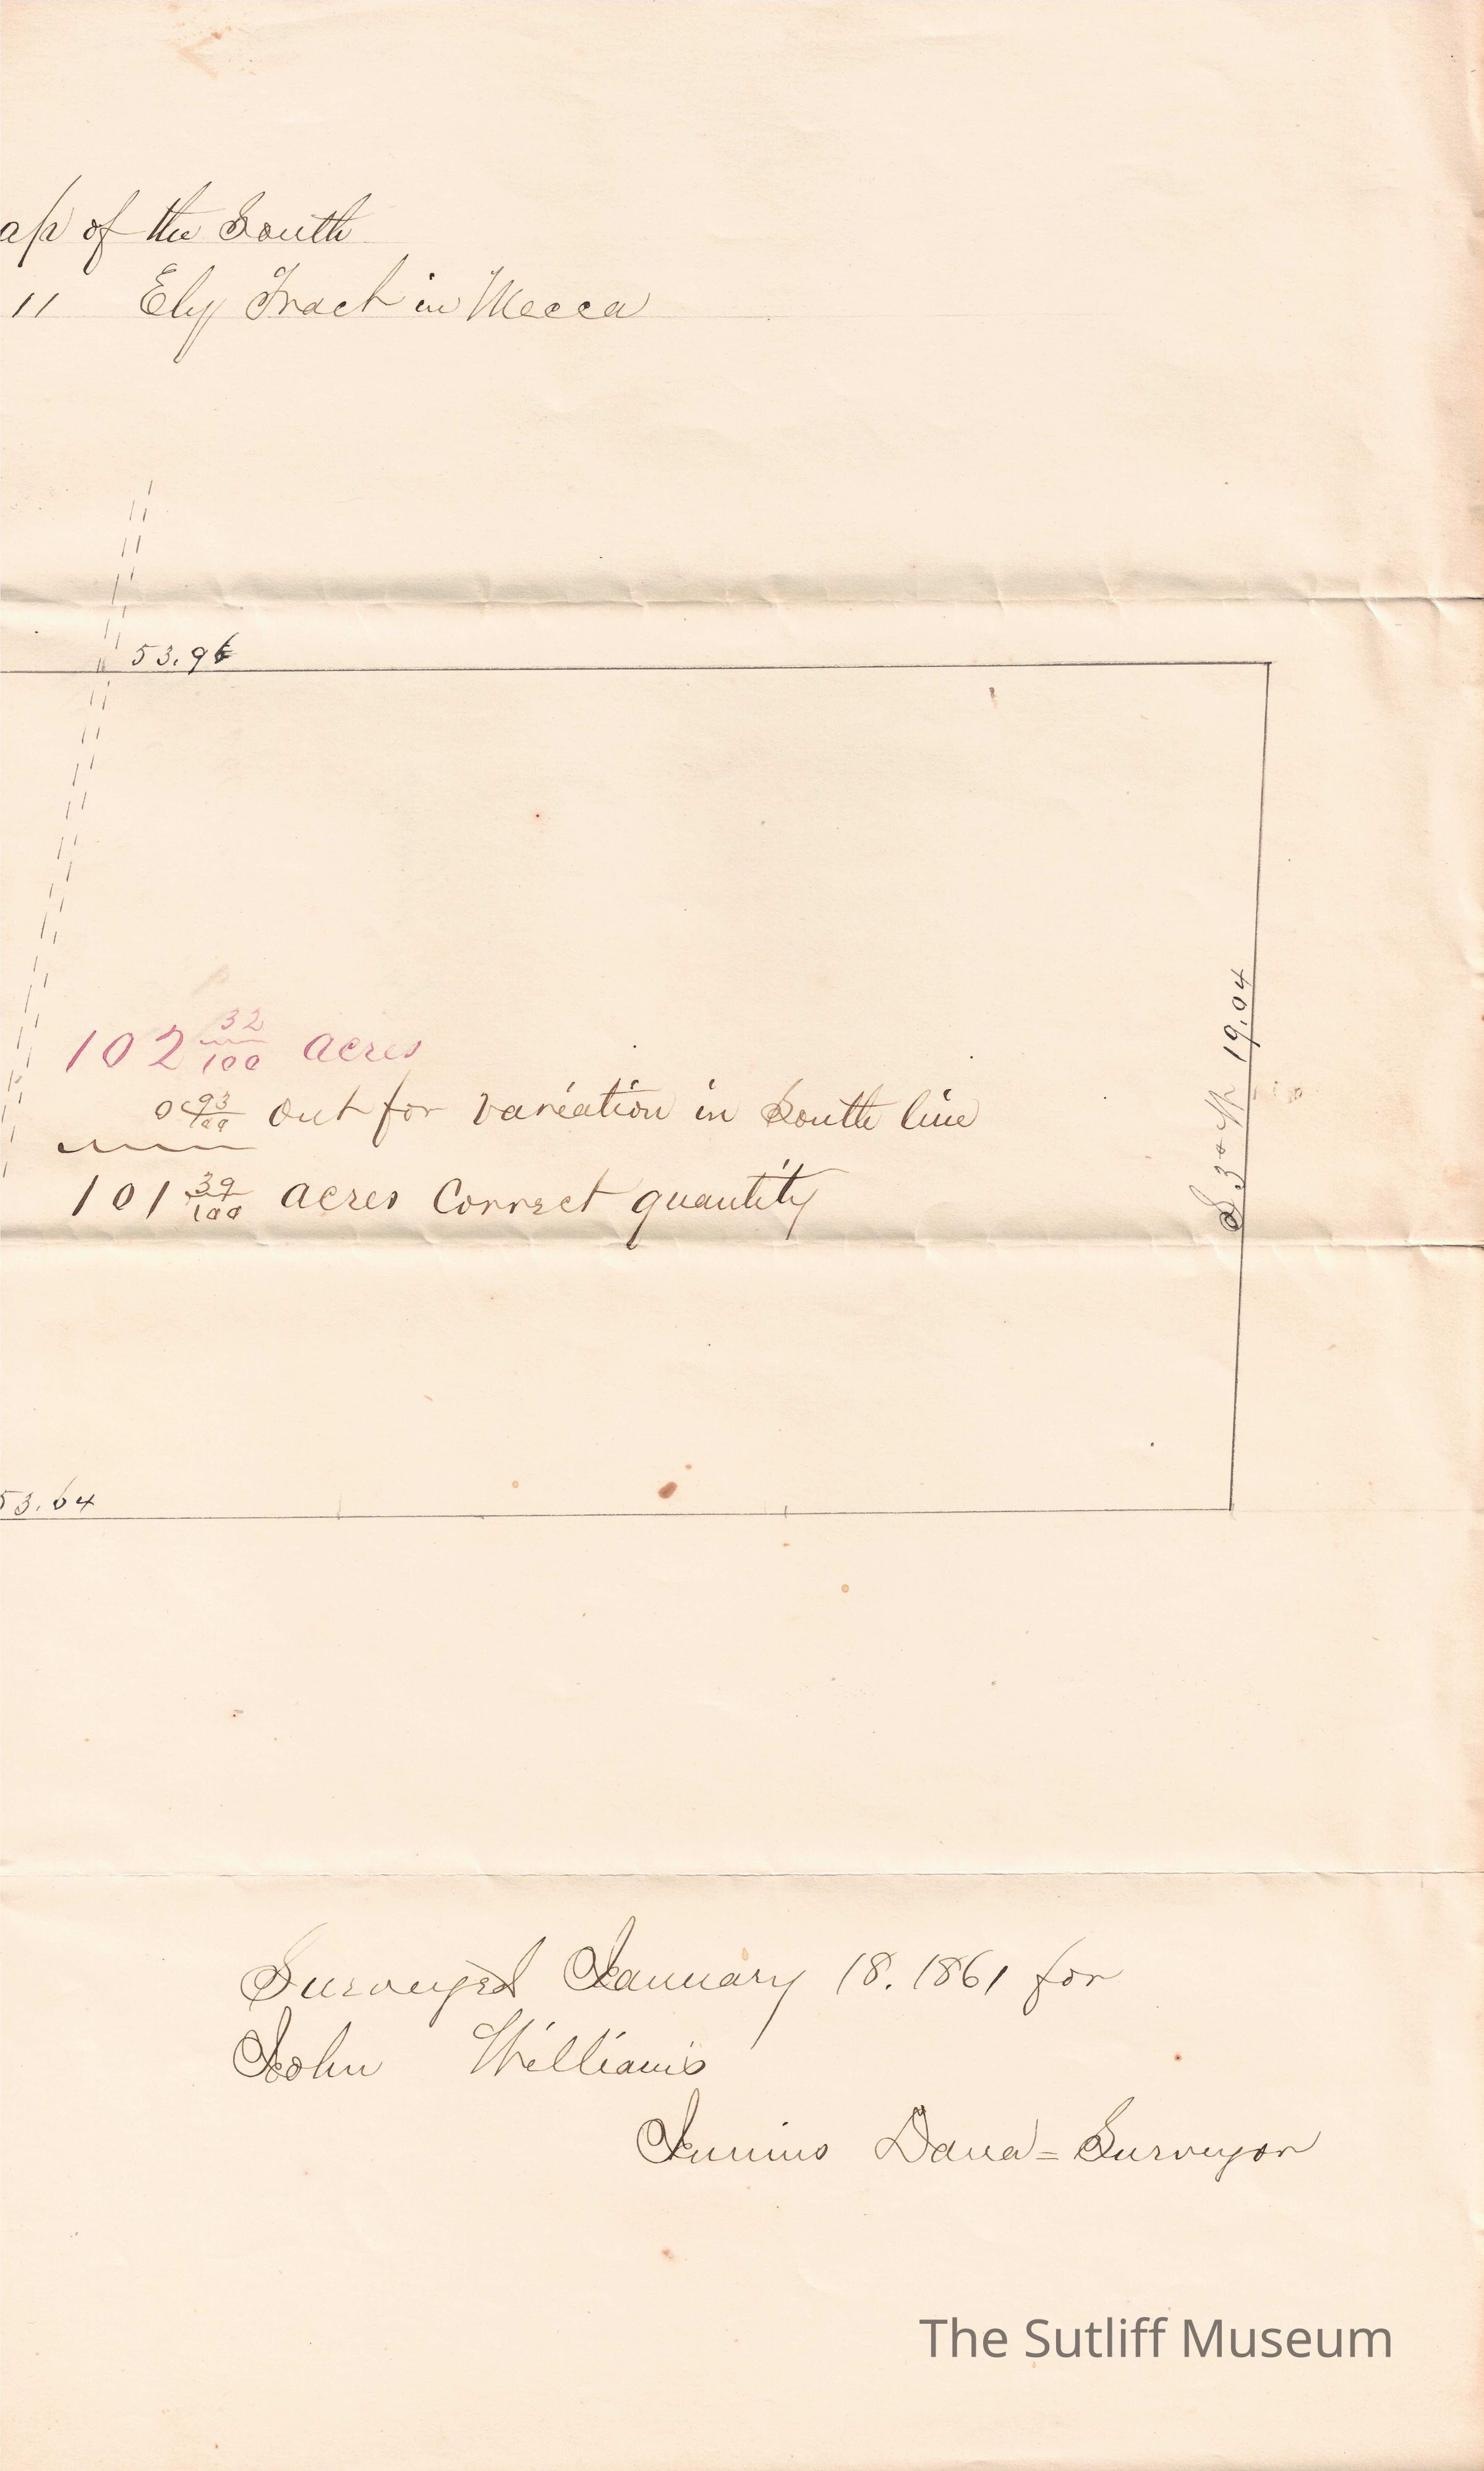 ap of the South
11 Ely Tract in Mecca
53.96
102 32/100 acres
0 93/100 out for variation in South line
101 39/100 acres Correct quantity
S. 3° W 19.04
53.64
Surveyed January 18. 1861 for
John Williams
Junius Dana = Surveyor
The Sutliff Museum